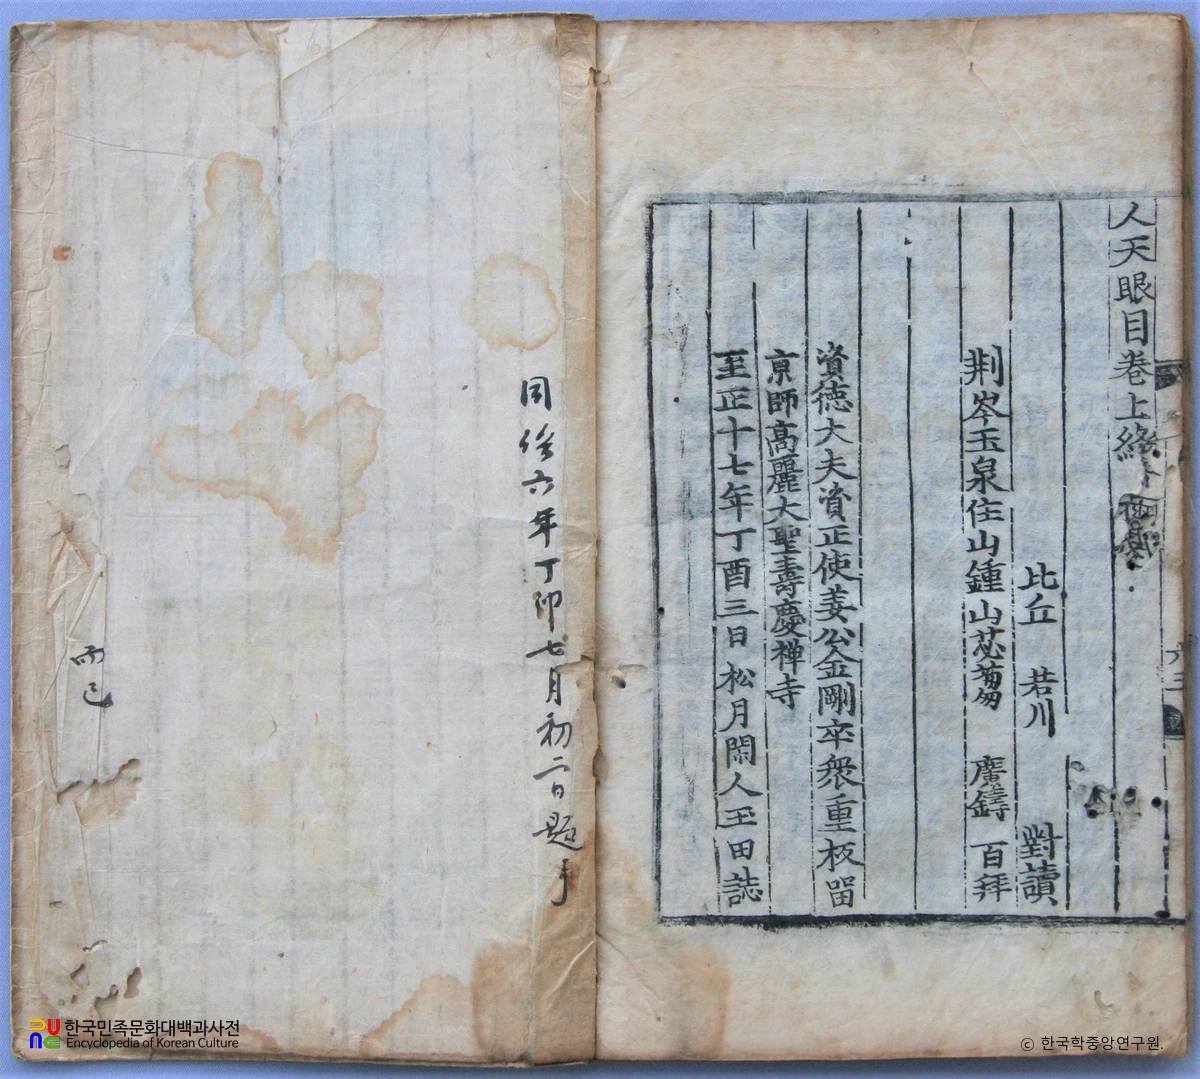 人天眼目卷上終
比丘 若川 對讀
荆岑玉泉住山鍾山苾蒭 麐鑄 百拜
資德大夫資正使姜公金剛卒衆重板留
京師高麗大聖壽慶禅寺
至正十七年丁酉三日 松月閑人玉田誌
六三
同治六年丁卯七月初二日題于
而已
한국민족문화대백과사전
Encyclopedia of Korean Culture
© 한국학중앙연구원.